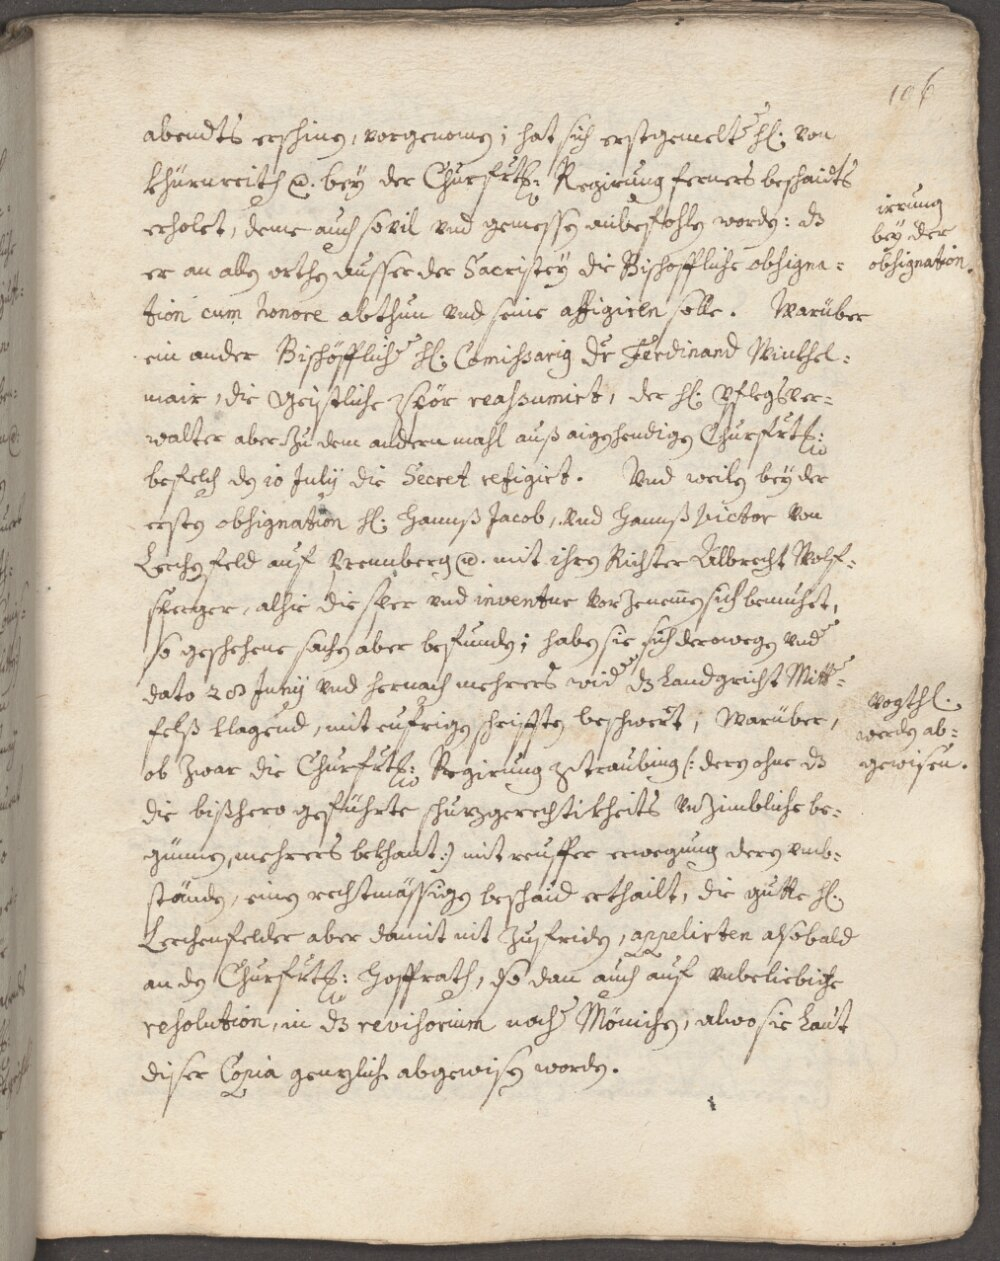 106
abendts erschinen, vorgenomen; hat sich erstgemelter H: von
Khürnreith etc. bey der Churfrtl: Regierung ferners beschaidts
erholet, deme auch sovil und gemessen anbefohlen worden: dz
er an allen orthen ausser der Sacristey die Bischoffliche obsigna=
tion cum honore abthun und seine affigiren solle. Warüber
ein ander Bischöfflicher H: Comissarig Dr Ferdinand Winthel=
mair, die geistliche spör reassumiert, der H: Pflegsver=
walter aber zu dem andern mahl auß aigenhendigen Churfrtl:
befelch den 10 July die Secret refigirt. Und weilen bey der
ersten obsignation H: Hannß Jacob, und Hannß Victor von
Lerchenfeld auf Prennberg etc. mit ihren Richter Albrecht Wolf=
sperger, alhie die sper und inventur vorzenemen sich bemühet,
so geschehene sachen aber befunden; haben sie sich derowegen under
dato 28 Juny und hernach mehrers wider dz Landgricht Mitter=
felß klagend, mit eufrigen schrifften beschwert; Warüber,
ob zwar die Churfrtl: Regierung Straubing (: deren ohne dz
die bißhero geführte schuzgerechtikheits unzimbliche be=
ginnen, mehrers bekhant:) mit reuffer erwegung deren umb=
stenden, einen rechtmässigen beschaid erthailt, die gutte H:
Lerchenfelder aber damit nit zufriden, appelirten alsobald
an den Churfrtl: Hoffrath, so dan auch auf unbeliebiche
resolution, in dz revisorium nach München, alwo sie Laut
diser Copia genzlich abgewisen worden.
irrung
bey der
obsignation.
Vogthl:
werden ab=
gewisen.